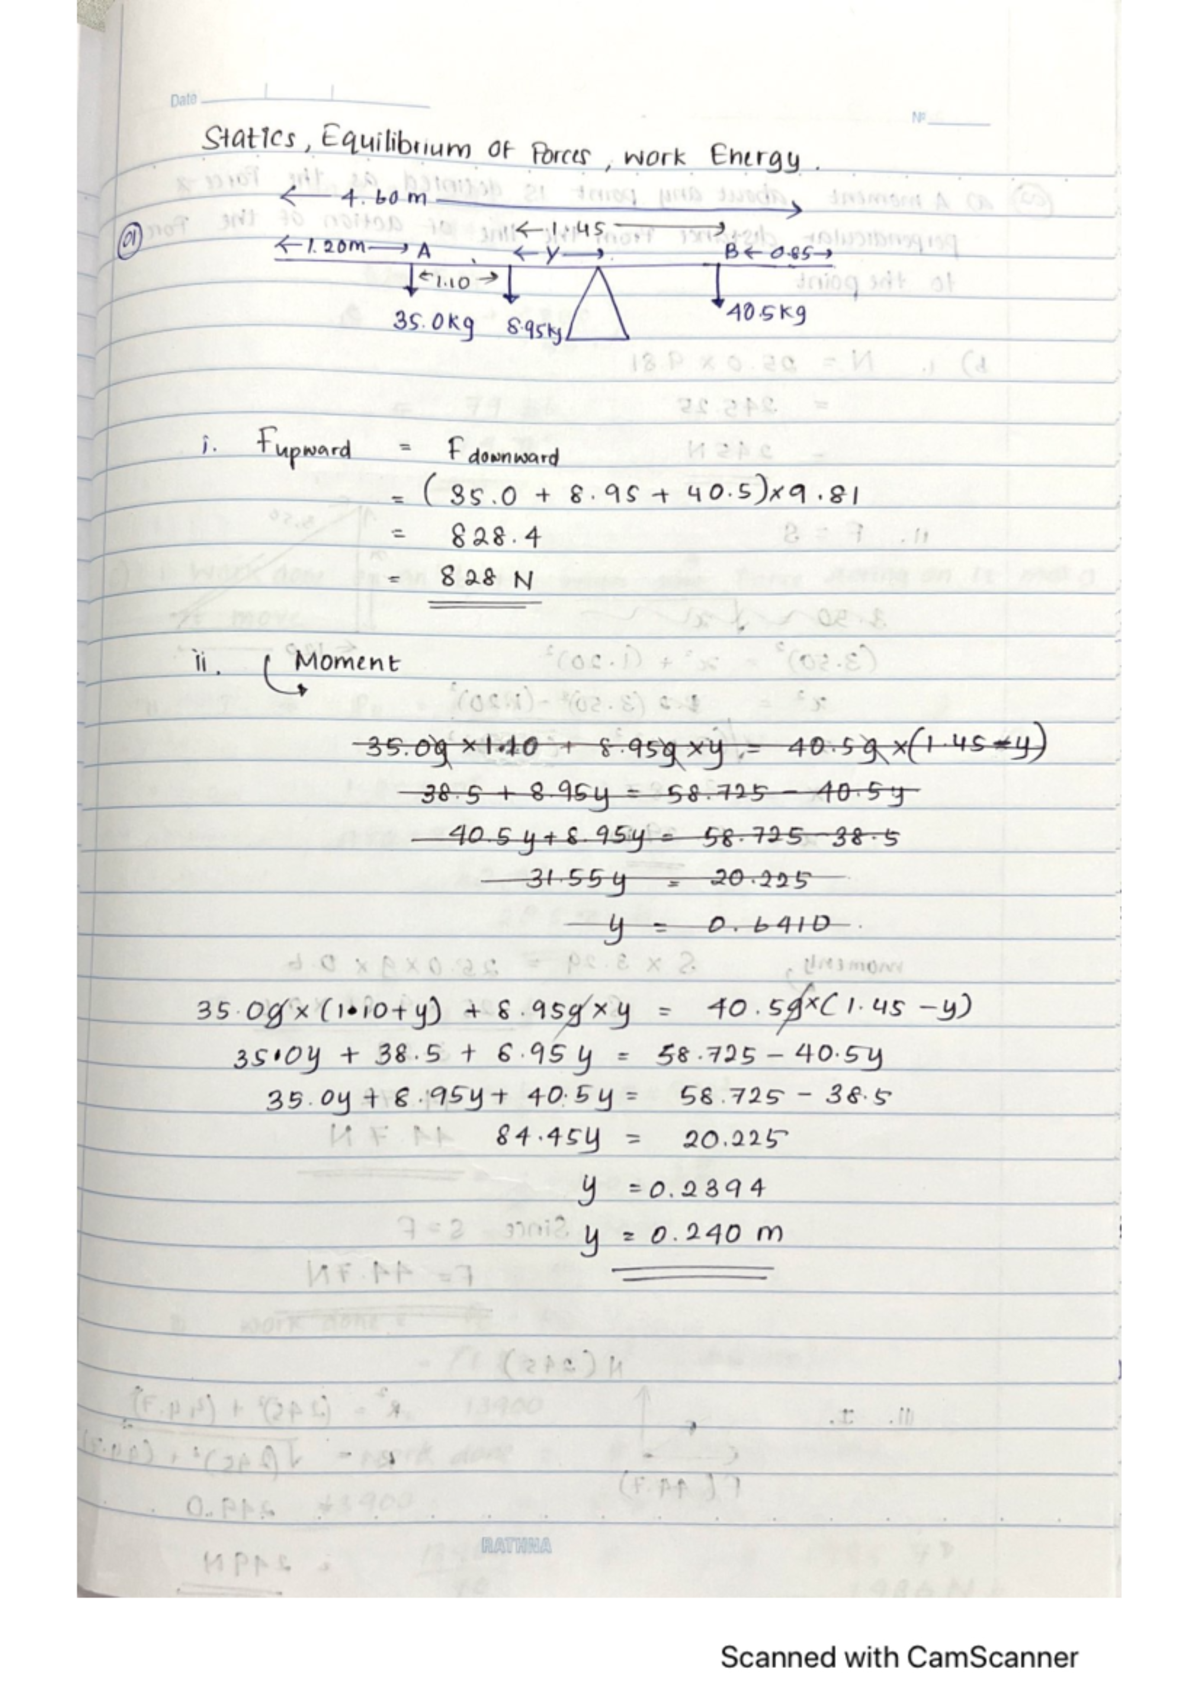 Date
Nº
Statics, Equilibrium of Forces, work Energy.
4.60m
01
1.45
1.20m A y B 0.85
1.10
35.0kg 8.95kg 40.5kg
i. Fupward = Fdownward
= (35.0 + 8.95 + 40.5)×9.81
= 828.4
= 828 N
ii. Moment
35.0g ×1.10 + 8.95g ×y = 40.5g ×(1.45-y)
38.5 + 8.95y = 58.725 - 40.5y
40.5y + 8.95y = 58.725 - 38.5
31.55y = 20.225
y = 0.6410
35.0g × (1.10+y) + 8.95g × y = 40.5g×(1.45 -y)
35.0y + 38.5 + 6.95y = 58.725 - 40.5y
35.0y + 8.95y + 40.5y = 58.725 - 38.5
84.45y = 20.225
y = 0.2394
y = 0.240 m
RATHNA
Scanned with CamScanner